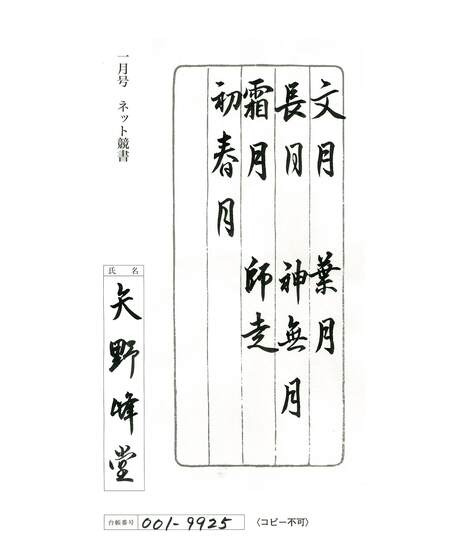 文月　葉月
長月　神無月
霜月　師走
初春月
一月号　ネット競書
氏名
矢野峰堂
台帳番号 001-9925 〈コピー不可〉